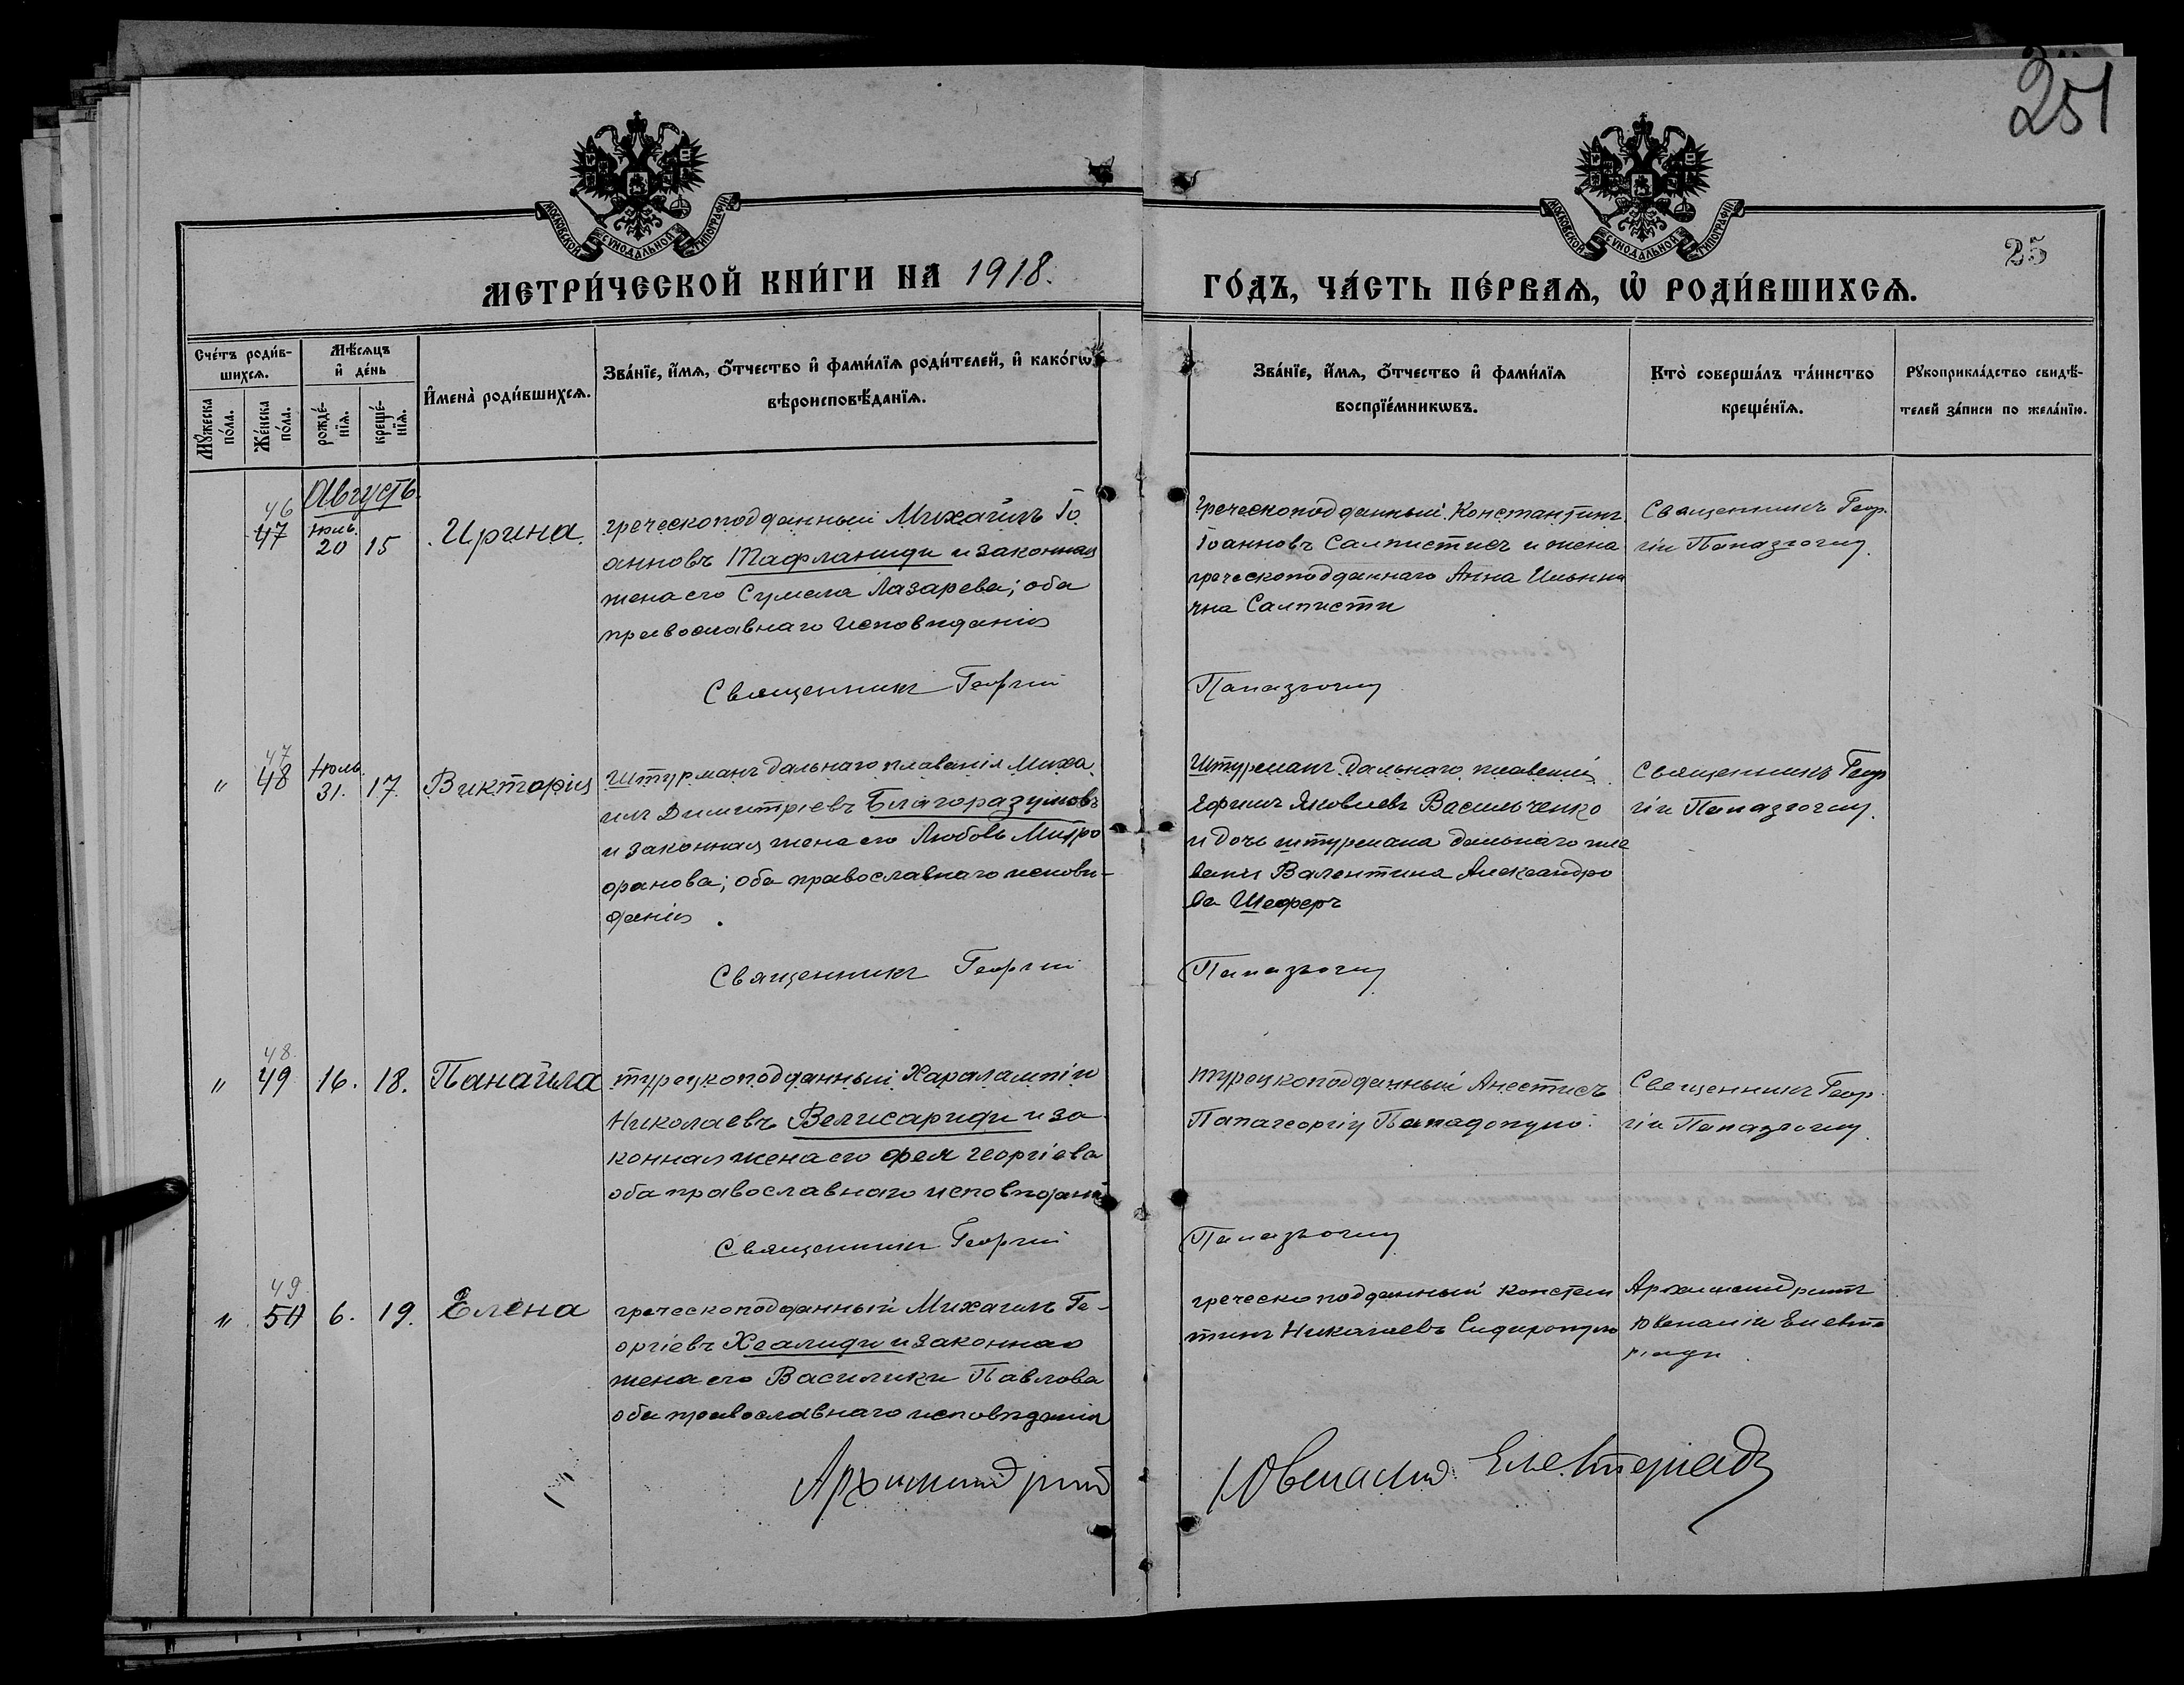 251
25
МОСКОВСКОЙ СѴНОДАЛЬНОЙ ТИПОГРАФІИ
МОСКОВСКОЙ СѴНОДАЛЬНОЙ ТИПОГРАФІИ
МЕТРИ́ЧЕСКОЙ КНИ́ГИ НА 1918.
ГО́ДЪ, ЧА́СТЬ ПЕ́РВАѦ, Ѡ РОДИ́ВШИХСѦ.
Сче́тъ роди́в-
шихсѧ.
Мꙋ́жеска
по́ла.
Же́нска
по́ла.
Мѣ́сѧцъ
и҆ де́нь
рожде́-
нїѧ.
креще́-
нїѧ.
И҆мена̀ роди́вшихсѧ.
Зва́нїе, и҆́мѧ, ѻ҆́тчество и҆ фами́лїѧ роди́телей, и҆ како́гѡ
вѣроисповѣ́данїѧ.
Зва́нїе, и҆́мѧ, ѻ҆́тчество и҆ фами́лїѧ
воспрїе́мникѡвъ.
Кто̀ соверша́лъ та́инство
креще́нїѧ.
Рꙋкоприкла́дство свидѣ́-
телей за́писи по жела́нїю.
Августъ.
46
47
Іюль
20
15
Ирина
греческоподданный Михаилъ Іо
анновъ Тафланиди и законная
жена его Сумела Лазарева; оба
православнаго исповѣданія
Греческоподданный Константинъ
Іоанновъ Салпистисъ и жена
греческоподданнаго Анна Ильини
чна Салписти
Священникъ Геор
гій Папазогли
Священникъ Георгій
Папазогли
"
47
48
Іюль
31.
17.
Викторія
Штурманъ дальнаго плаванія Миха
илъ Димитріевъ Благоразумовъ
и законная жена его Любовь Митро
фанова; оба православнаго исповѣ-
данія.
Штурманъ дальнаго плаванія
Ефимъ Яковлевъ Васильченко
и дочь штурмана дальнаго пла
ванія Валентина Александро
ва Шеферъ
Священникъ Геор
гій Папазогли.
Священникъ Георгій
Папазогли
"
48.
49
16.
18.
Панаила
турецкоподданный Харалампій
Николаевъ Велисариди и за
конная жена его Фея Георгіева
оба православнаго исповѣданія
турецкоподданный Анестисъ
Папагеоргіу Пападопуло.
Священникъ Геор
гій Папазогли
Священникъ Георгій
Папазогли
"
49
50
6.
19.
Елена
греческоподданный Михаилъ Ге-
оргіевъ Хсалиди и законная
жена его Василики Павлова
оба православнаго исповѣданія
греческоподданный Констан
тинъ Николаевъ Сидиропуло
Архимандритъ
Ювеналій Елевте
ріади
Архимандритъ
Ювеналій Елевтеріади